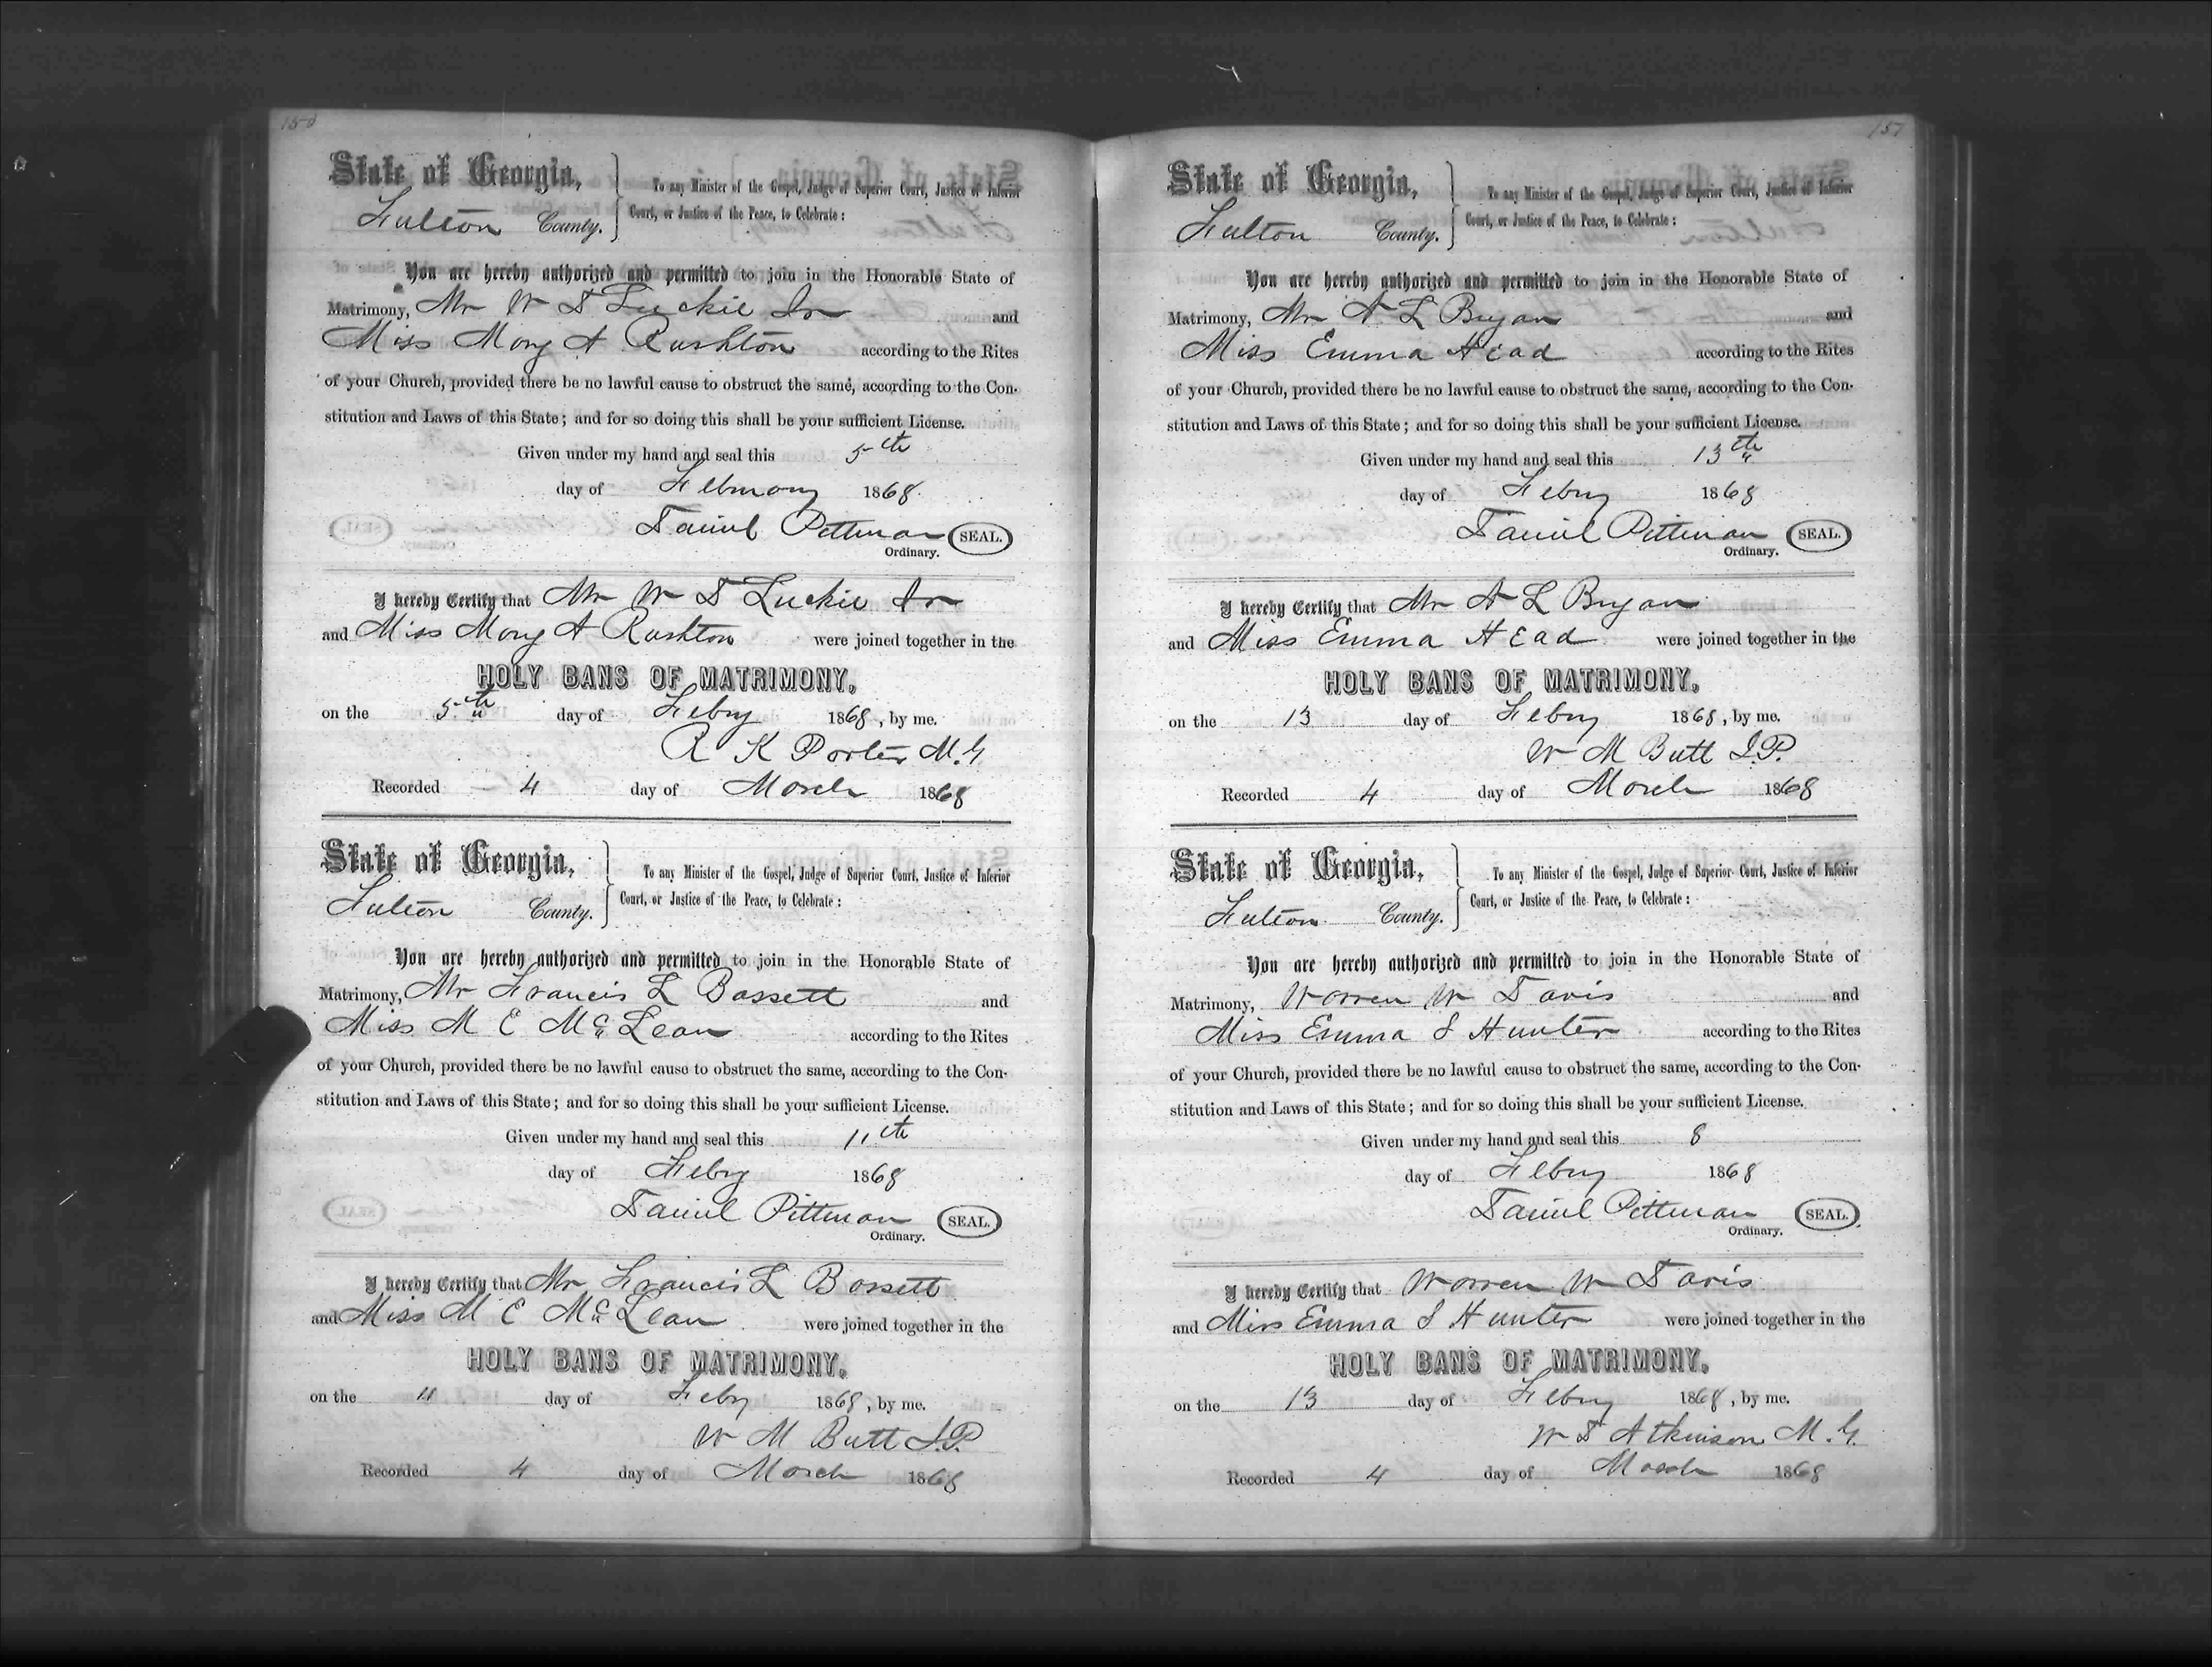 State of Georgia,
Fulton County.
To any Minister of the Gospel, Judge of Superior Court, Justice of Inferior
Court, or Justice of the Peace, to Celebrate:
You are hereby authorized and permitted to join in the Honorable State of
Matrimony, Mr W S Luckie Jr and
Miss Mary A Rushton according to the Rites
of your Church, provided there be no lawful cause to obstruct the same, according to the Con-
stitution and Laws of this State; and for so doing this shall be your sufficient License.
Given under my hand and seal this 5th
day of February 1868
Daniel Pittman SEAL.
Ordinary.
I hereby Certify that Mr W S Luckie Jr
and Miss Mary A Rushton were joined together in the
HOLY BANS OF MATRIMONY,
on the 5th day of Febry 1868, by me.
R K Porter M.G
Recorded 4 day of March 1868
State of Georgia,
Fulton County.
To any Minister of the Gospel, Judge of Superior Court, Justice of Inferior
Court, or Justice of the Peace, to Celebrate:
You are hereby authorized and permitted to join in the Honorable State of
Matrimony, Mr Francis L Bassett and
Miss M E McLean according to the Rites
of your Church, provided there be no lawful cause to obstruct the same, according to the Con-
stitution and Laws of this State; and for so doing this shall be your sufficient License.
Given under my hand and seal this 11th
day of Febry 1868
Daniel Pittman SEAL.
Ordinary.
I hereby Certify that Mr Francis L Bassett
and Miss M E McLean were joined together in the
HOLY BANS OF MATRIMONY,
on the 11 day of Feby 1868, by me.
W M Butt J.P.
Recorded 4 day of March 1868
157
State of Georgia,
Fulton County.
To any Minister of the Gospel, Judge of Superior Court, Justice of Inferior
Court, or Justice of the Peace, to Celebrate:
You are hereby authorized and permitted to join in the Honorable State of
Matrimony, Mr A L Bryan and
Miss Emma Head according to the Rites
of your Church, provided there be no lawful cause to obstruct the same, according to the Con-
stitution and Laws of this State; and for so doing this shall be your sufficient License.
Given under my hand and seal this 13th
day of Febry 1868
Daniel Pittman SEAL.
Ordinary.
I hereby Certify that Mr A L Bryan
and Miss Emma Head were joined together in the
HOLY BANS OF MATRIMONY,
on the 13 day of Febry 1868, by me.
W M Butt J.P.
Recorded 4 day of March 1868
State of Georgia,
Fulton County.
To any Minister of the Gospel, Judge of Superior Court, Justice of Inferior
Court, or Justice of the Peace, to Celebrate:
You are hereby authorized and permitted to join in the Honorable State of
Matrimony, Warren W Davis and
Miss Emma S Hunter according to the Rites
of your Church, provided there be no lawful cause to obstruct the same, according to the Con-
stitution and Laws of this State; and for so doing this shall be your sufficient License.
Given under my hand and seal this 8
day of Febry 1868
Daniel Pittman SEAL.
Ordinary.
I hereby Certify that Warren W Davis
and Miss Emma S Hunter were joined together in the
HOLY BANS OF MATRIMONY,
on the 13 day of Febry 1868, by me.
W S Atkinson M.G.
Recorded 4 day of March 1868